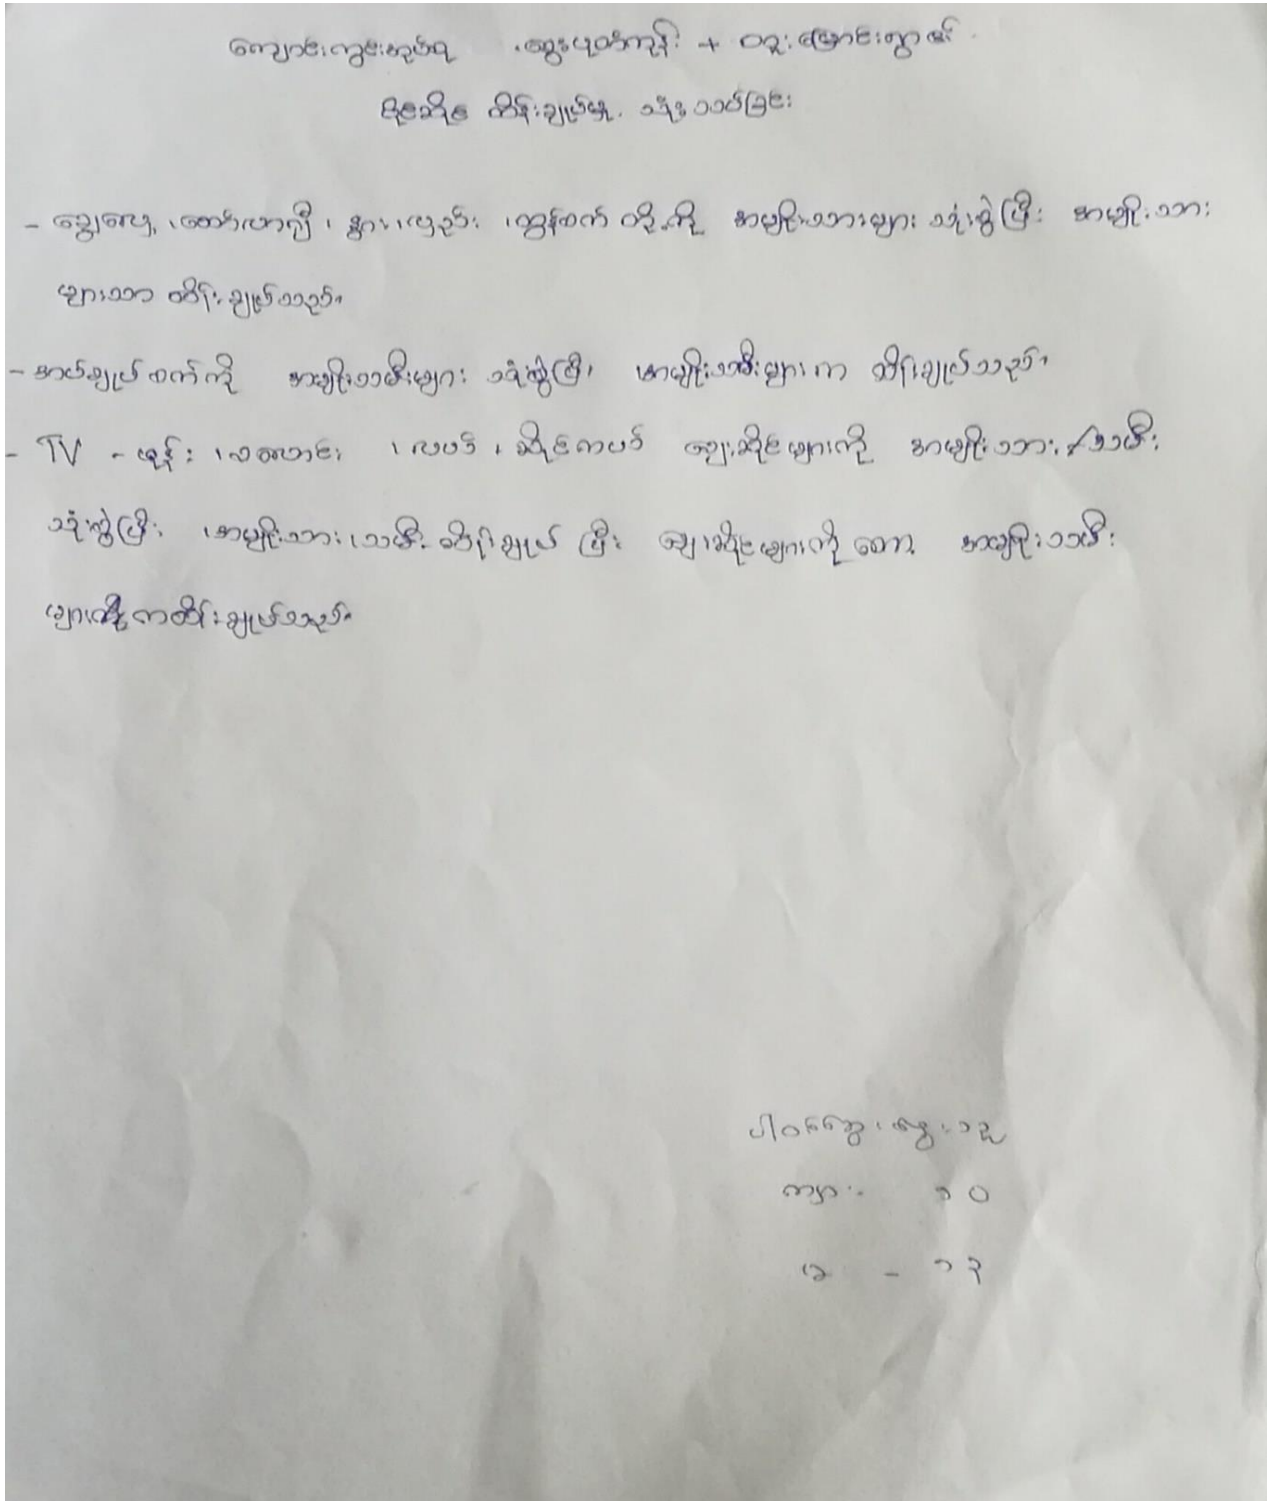 ကျောင်းကွင်းအုပ်စု ၊ ဆွေးပုတ်ကုန်း + ဝဲကြီးမြောင်းကျွန်း
ပိုင်ဆိုင် ထိန်းချုပ်မှု၊ သုံးသပ်ခြင်း
- ချွေလှေ့ ၊ ထော်လာဂျီ ၊ နွား ၊ လှည်း ၊ ထွန်စက် တို့ကို အမျိုးသားများ သုံးစွဲပြီး အမျိုးသား
များသာ ထိန်းချုပ်သည်။
- အပ်ချုပ်စက်ကို အမျိုးသမီးများ သုံးစွဲပြီး အမျိုးသမီးများက ထိန်းချုပ်သည်။
- TV - ဖုန်း ၊ ၊ ဆိုင်ကယ် ဈေးဆိုင်များကို အမျိုးသား/သမီး
သုံးစွဲပြီး ၊ အမျိုးသား၊သမီး ထိန်းချုပ် ပြီး ဈေးဆိုင်များကိုတော့ အမျိုးသမီး
များကထိန်းချုပ်သည်။
ပါဝင်ဆွေးနွေးသူ
ကျား - ၁၀
မ - ၁၃